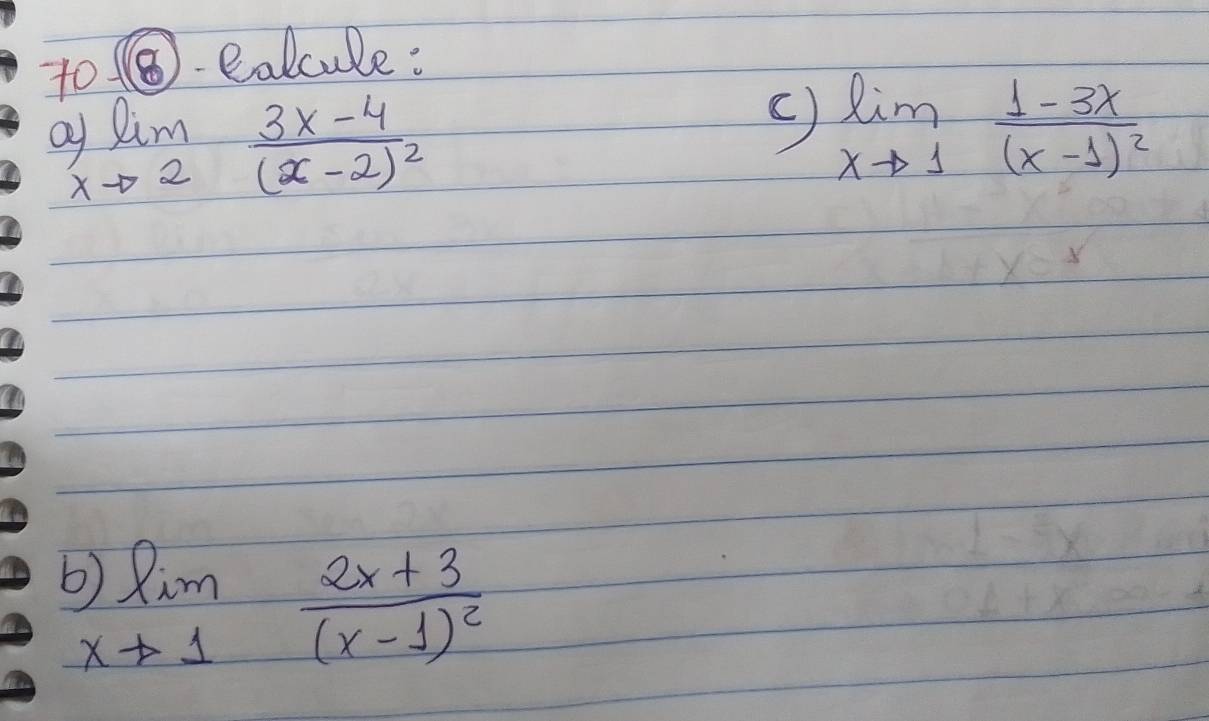 70-(8)- Calcule:
a) lim x→2 (3x-4)/(x-2)²
c) lim x→1 (1-3x)/(x-1)²
b) lim x→1 (2x+3)/(x-1)²